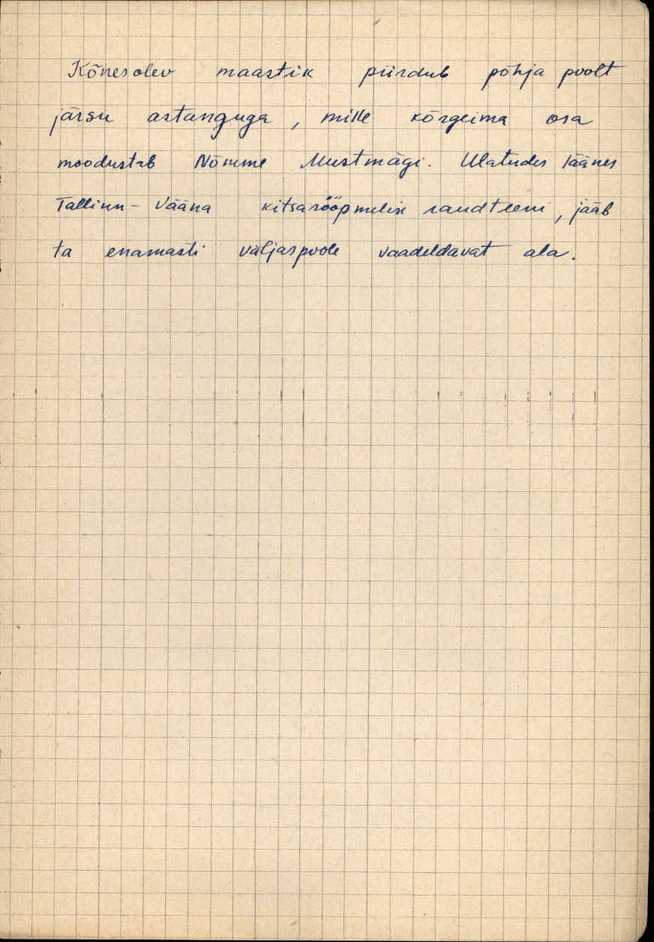 Kõnesolev maastik piirdub põhja poolt
järsu astanguga, mille kõrgeima osa
moodustab Nõmme Mustmägi. Ulatudes läänes
Tallinn - Vääna kitsarööpmelise raudteeni, jääb
ta enamasti väljaspoole vaadeldavat ala.